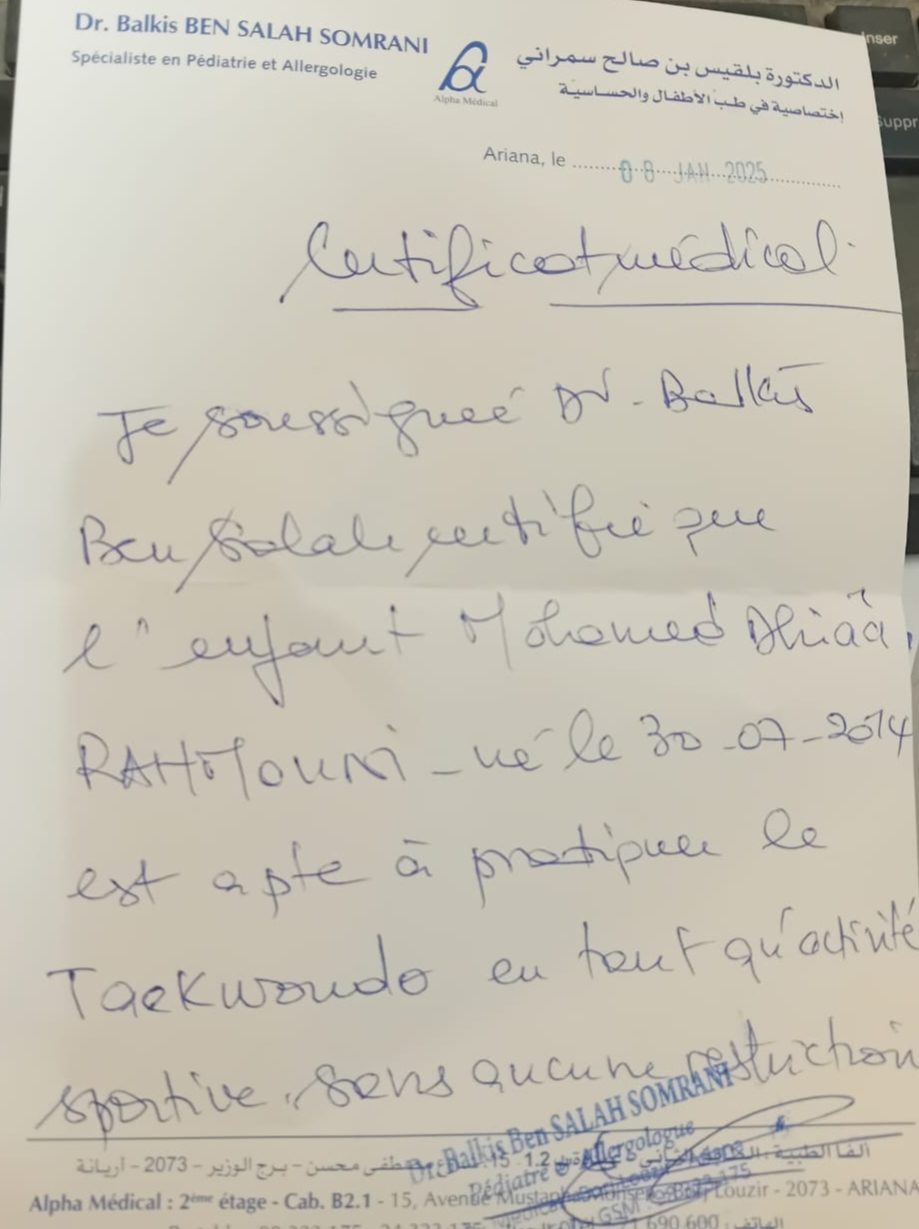 Dr. Balkis BEN SALAH SOMRANI
Spécialiste en Pédiatrie et Allergologie
Alpha Médical
الدكتورة بلقيس بن صالح سمراني
إختصاصية في طب الأطفال والحساسية
Ariana, le 08 JAN 2025
Certificat médical
Je soussignée Dr. Balkis
Ben Salah certifie que
l'enfant Mohamed Dhiaa
RAHMOUNI - né le 30-07-2014
est apte à pratiquer le
Taekwondo en tant qu'activité
sportive, sans aucune restriction
Dr. Balkis Ben SALAH SOMRANI
Pédiatre Allergologue
GSM
ألفا الطبية
مصطفى محسن - برج الوزير - 2073 - أريانة
Alpha Médical : 2ème étage - Cab. B2.1 - 15, Avenue Mustapha Louzir - 2073 - ARIANA
690 600